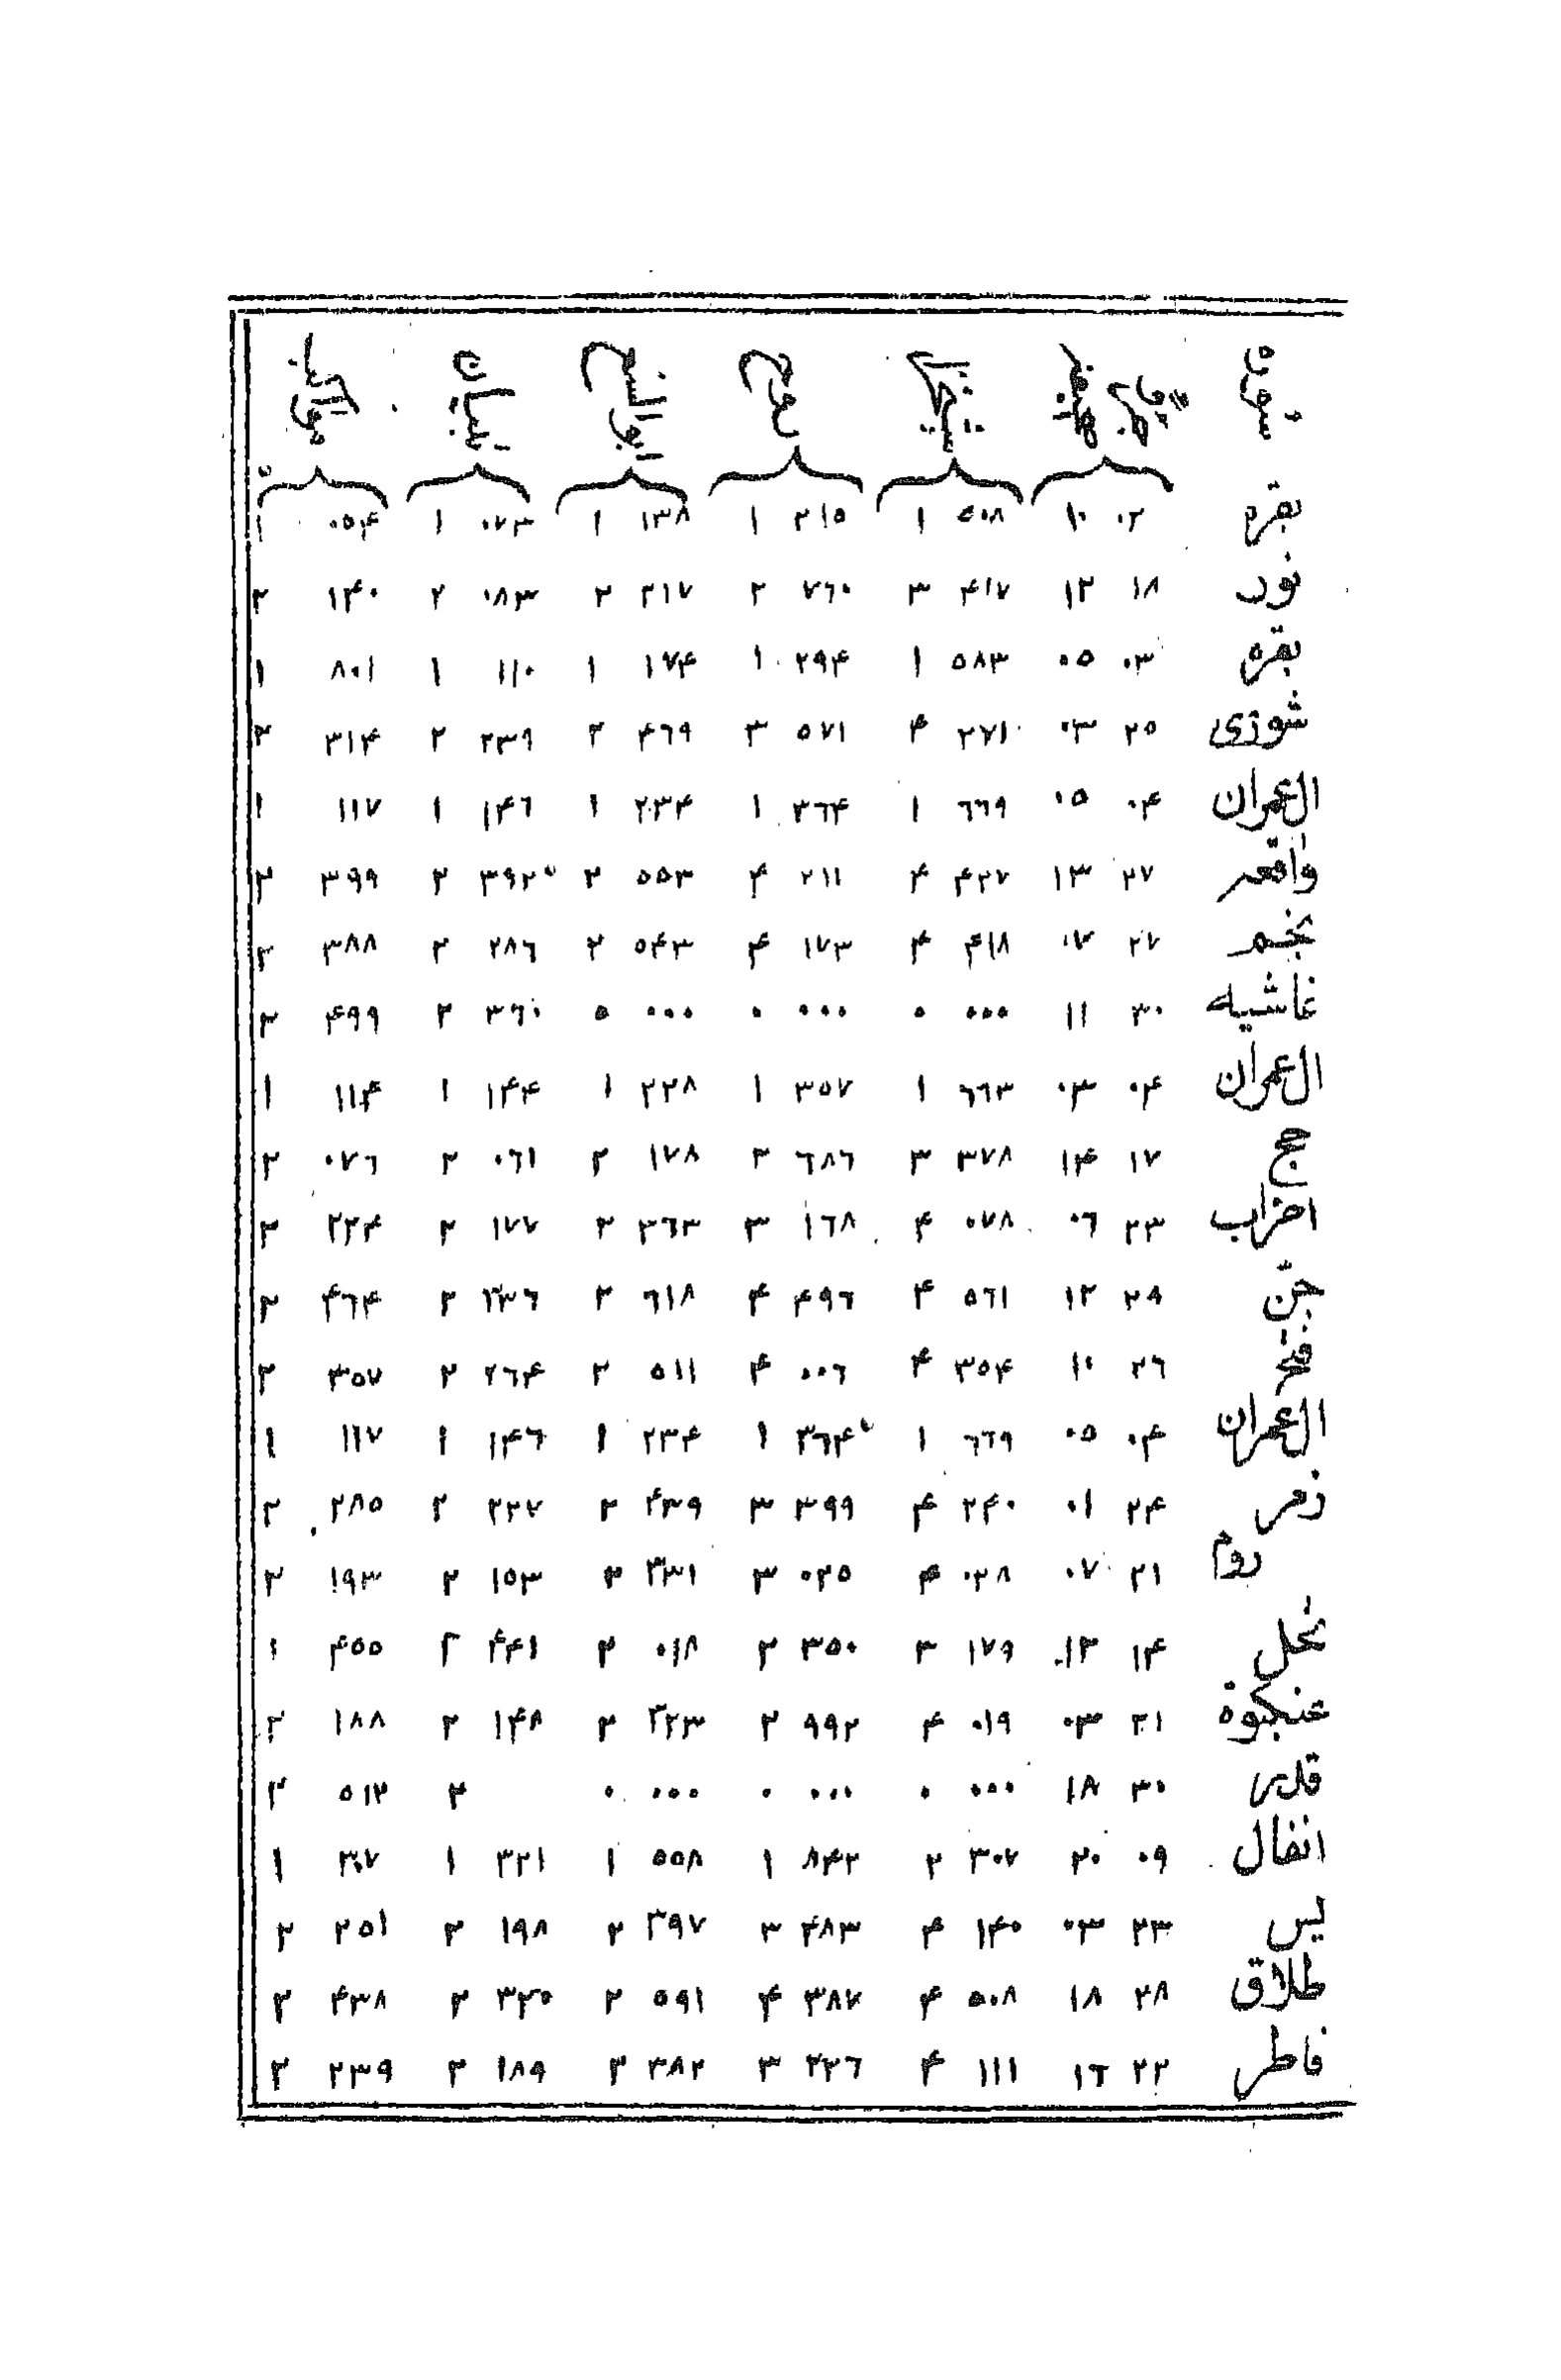 بقره ۰۲ ۱۰ ۵۰۸ ۱ ۲۱۵ ۱ ۱۳۸ ۱ ۰۷۳ ۱ ۰۵۴ ۱
نور ۱۸ ۱۲ ۴۱۷ ۳ ۷٦۰ ۲ ۲۱۷ ۲ ۰۸۳ ۲ ۱۴۰ ۲
بقره ۰۳ ۰۵ ۵۸۳ ۱ ۲۹۴ ۱ ۱۷۴ ۱ ۱۱۰ ۱ ۸۰۱ ۱
شوری ۲۵ ۰۳ ۲۷۱ ۴ ۵۷۱ ۳ ۴٦۹ ۲ ۲۳۹ ۲ ۳۱۴ ۲
ال عمران ۰۴ ۰۵ ٦٦۹ ۱ ۳٦۴ ۱ ۲۳۴ ۱ ۱۴٦ ۱ ۱۱۷ ۱
واقعه ۲۷ ۱۳ ۴۲۷ ۴ ۲۱۱ ۴ ۵۵۳ ۲ ۳۹۲ ۲ ۳۹۹ ۲
نجم ۲۷ ۰۷ ۴۱۸ ۴ ۱۷۳ ۴ ۵۴۳ ۲ ۲۸٦ ۲ ۳۸۸ ۲
غاشیه ۳۰ ۱۱ ۰۰۰ ۰ ۰۰۰ ۰ ۰۰۰ ۵ ۳٦۰ ۲ ۴۹۹ ۲
ال عمران ۰۴ ۰۳ ٦٦۳ ۱ ۳۵۷ ۱ ۲۲۸ ۱ ۱۴۴ ۱ ۱۱۴ ۱
حج ۱۷ ۱۴ ۳۷۸ ۳ ٦۸٦ ۲ ۱۷۸ ۲ ۰٦۱ ۲ ۰۷٦ ۲
احزاب ۲۳ ۰٦ ۰۷۸ ۴ ۱٦۸ ۳ ۳٦۳ ۲ ۱۷۷ ۲ ۲۲۴ ۲
جنّ ۲۹ ۱۲ ۵٦۱ ۴ ۴۹٦ ۴ ٦۱۸ ۲ ۳۳٦ ۲ ۴٦۴ ۲
فتح ۲٦ ۱۰ ۳۵۴ ۴ ۰۰٦ ۴ ۵۱۱ ۲ ۲٦۴ ۲ ۳۵۷ ۲
ال عمران ۰۴ ۰۵ ٦٦۹ ۱ ۳٦۴ ۱ ۲۳۴ ۱ ۱۴٦ ۱ ۱۱۷ ۱
زمر ۲۴ ۰۱ ۲۴۰ ۴ ۳۹۹ ۳ ۴۳۹ ۲ ۲۲۷ ۲ ۲۸۵ ۲
روم ۲۱ ۰۷ ۰۲۸ ۴ ۰۲۵ ۳ ۳۳۱ ۲ ۱۵۳ ۲ ۱۹۳ ۲
نحل ۱۴ ۱۳ ۱۷۹ ۳ ۳۵۰ ۲ ۰۱۸ ۲ ۴۴۱ ۲ ۴۵۵ ۱
عنکبوة ۲۱ ۰۳ ۰۱۹ ۴ ۹۹۲ ۲ ۳۲۳ ۲ ۱۴۸ ۲ ۱۸۸ ۲
قدر ۳۰ ۱۸ ۰۰۰ ۰ ۰۰۰ ۰ ۰۰۰ ۰ ۲ ۵۱۲ ۲
انفال ۰۹ ۲۰ ۳۰۷ ۲ ۸۴۲ ۱ ۵۵۸ ۱ ۳۲۱ ۱ ۳۰۷ ۱
یس ۲۳ ۰۳ ۱۴۰ ۴ ۴۸۳ ۳ ۳۹۷ ۲ ۱۹۸ ۲ ۲۵۱ ۲
طلاق ۲۸ ۱۸ ۵۰۸ ۴ ۳۸۷ ۴ ۵۹۱ ۲ ۳۲۰ ۲ ۴۳۸ ۲
فاطر ۲۲ ۱٦ ۱۱۱ ۴ ۲۲٦ ۳ ۳۸۲ ۲ ۱۸۹ ۲ ۲۳۹ ۲